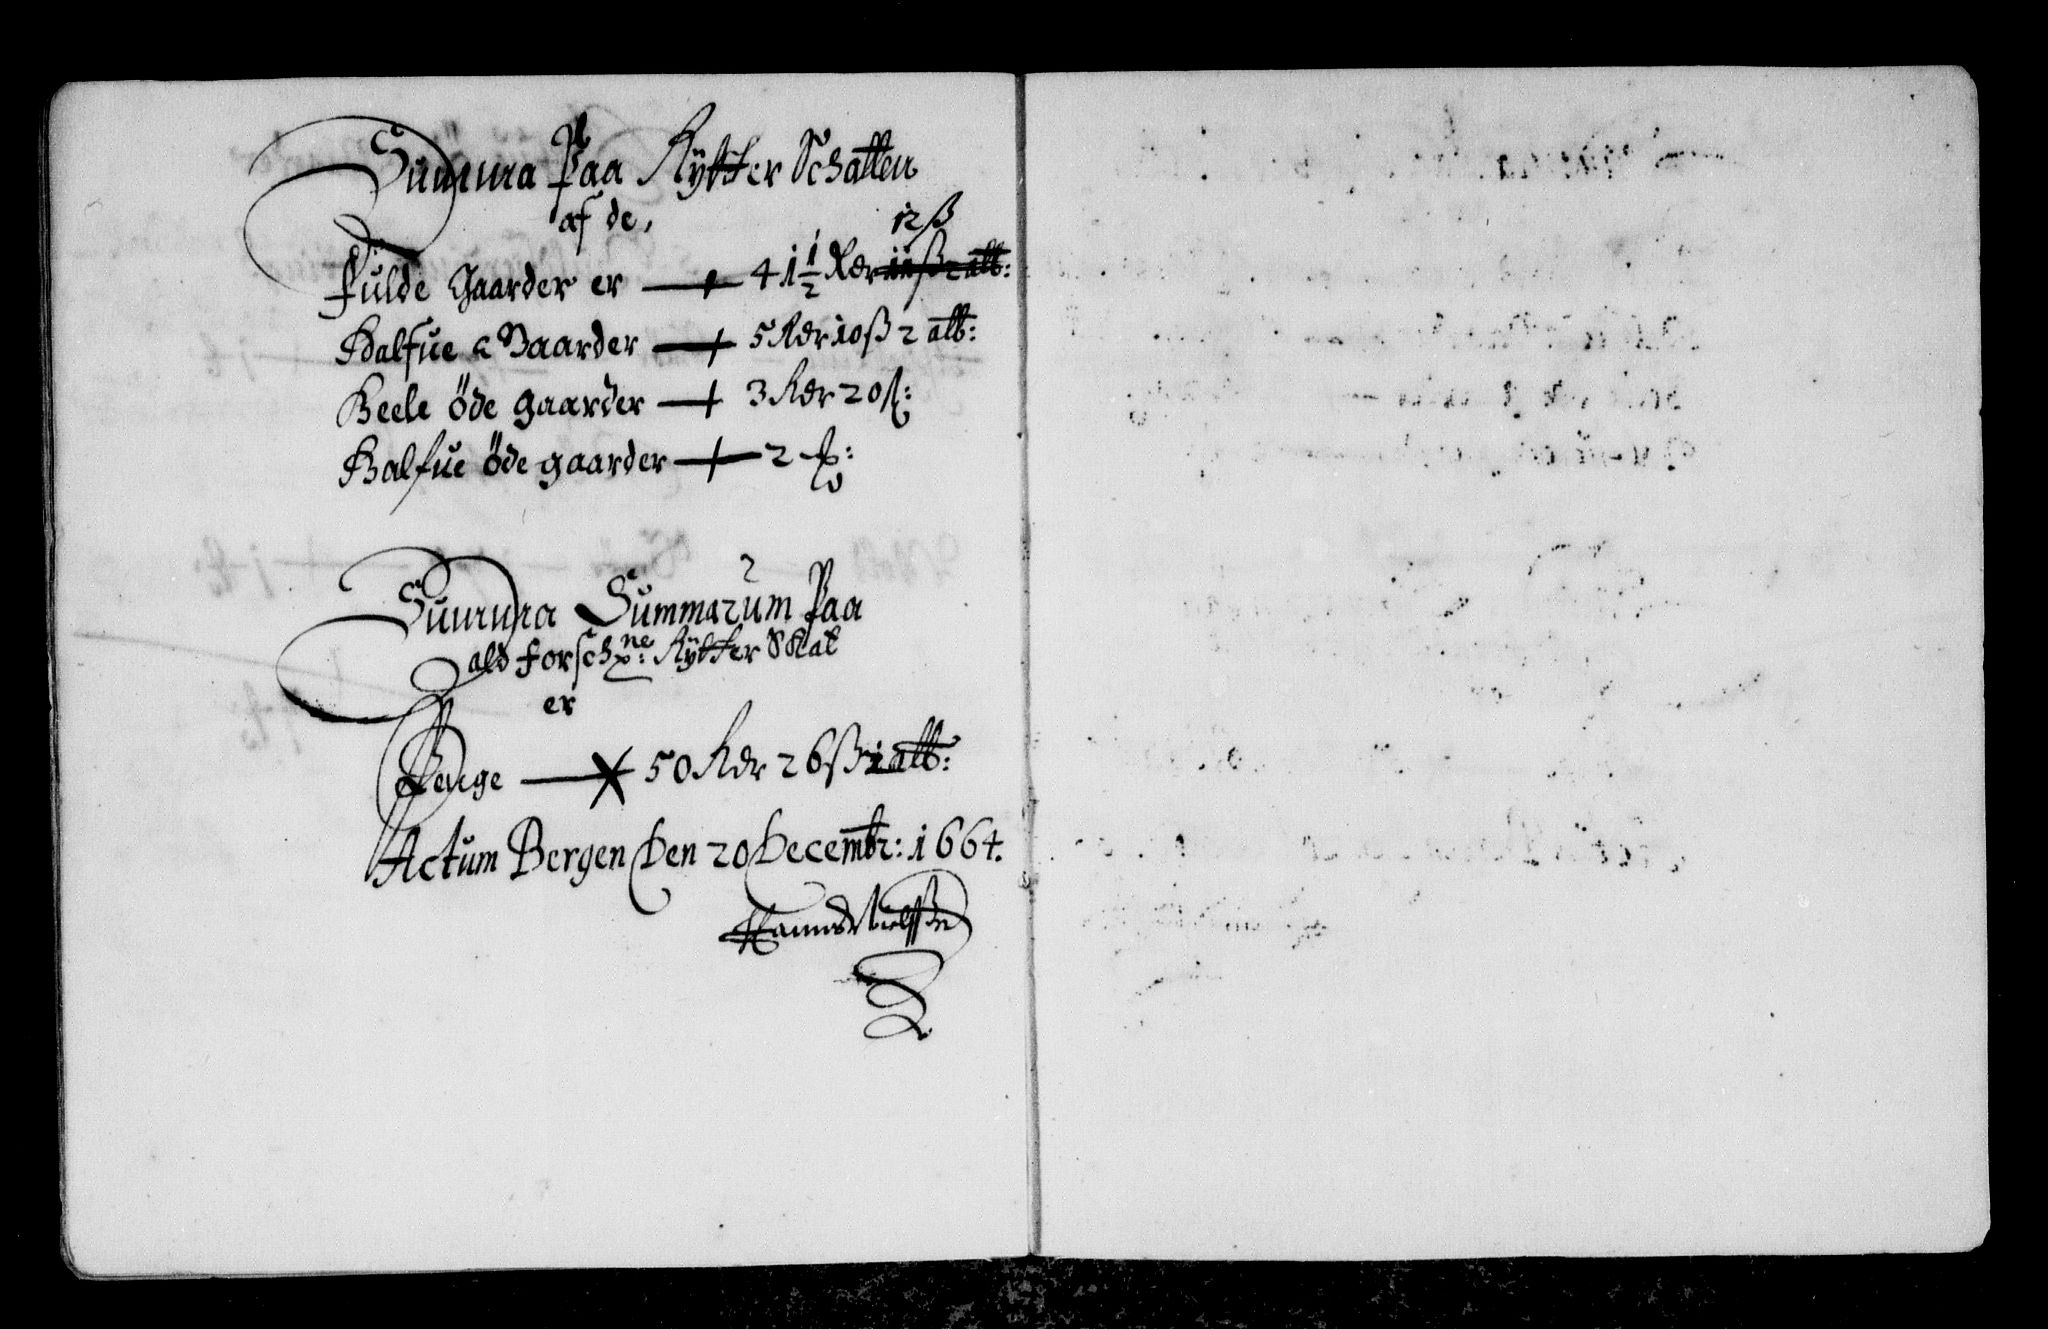 Summa Paa Rÿtter Schatten
af de,
12 ß
Fulde Gaarder er — 41 1/2 Rdr 11 ß 2 alb:
Halfue Gaarder — 5 Rdr 10 ß 2 alb:
Heele öde gaarder — 3 Rdr 20 ß:
Halfue öde gaarder — 2 ß:
Summa Summarum Paa
ald forschne: Rÿtter Skat
er
Penge — 50 Rdr 26 ß 2 alb:
Actum Bergen Den 20 Decembr: 1664.